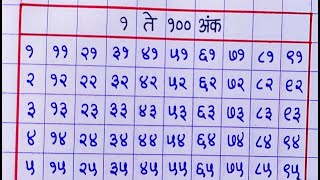 १ ते १०० अंक
१ ११ २१ ३१ ४१ ५१ ६१ ७१ ८१ ९१
२ १२ २२ ३२ ४२ ५२ ६२ ७२ ८२ ९२
३ १३ २३ ३३ ४३ ५३ ६३ ७३ ८३ ९३
४ १४ २४ ३४ ४४ ५४ ६४ ७४ ८४ ९४
५ १५ २५ ३५ ४५ ५५ ६५ ७५ ८५ ९५